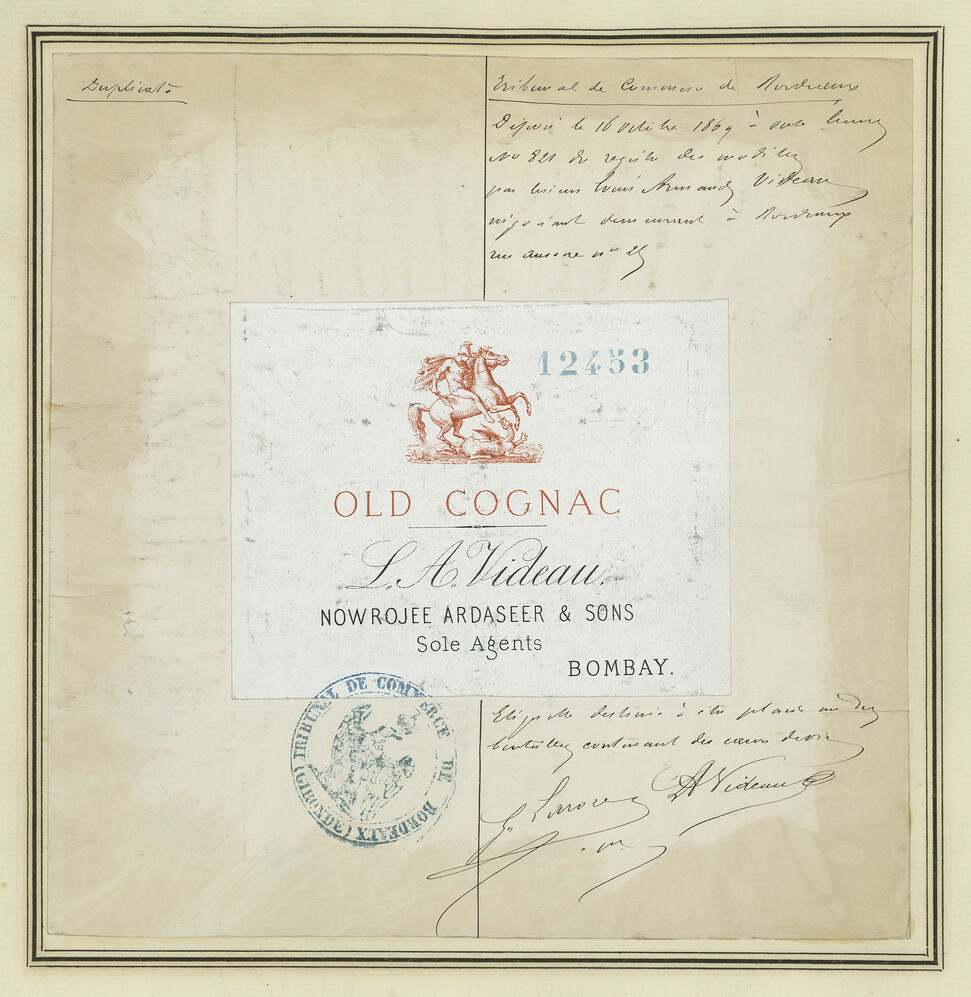 Duplicata
Tribunal de Commerce de Bordeaux
Déposé le 16 octobre 1869 à onze heures
No 821 du registre des modèles
par Louis Armand Videau
négociant demeurant à Bordeaux
rue ausone no
12453
OLD COGNAC
L. A. Videau.
NOWROJEE ARDASEER & SONS
Sole Agents
BOMBAY.
TRIBUNAL DE COMMERCE DE BORDEAUX (GIRONDE)
Etiquette destinée à être placée sur des
bouteilles contenant des eaux de vie
LA Videau